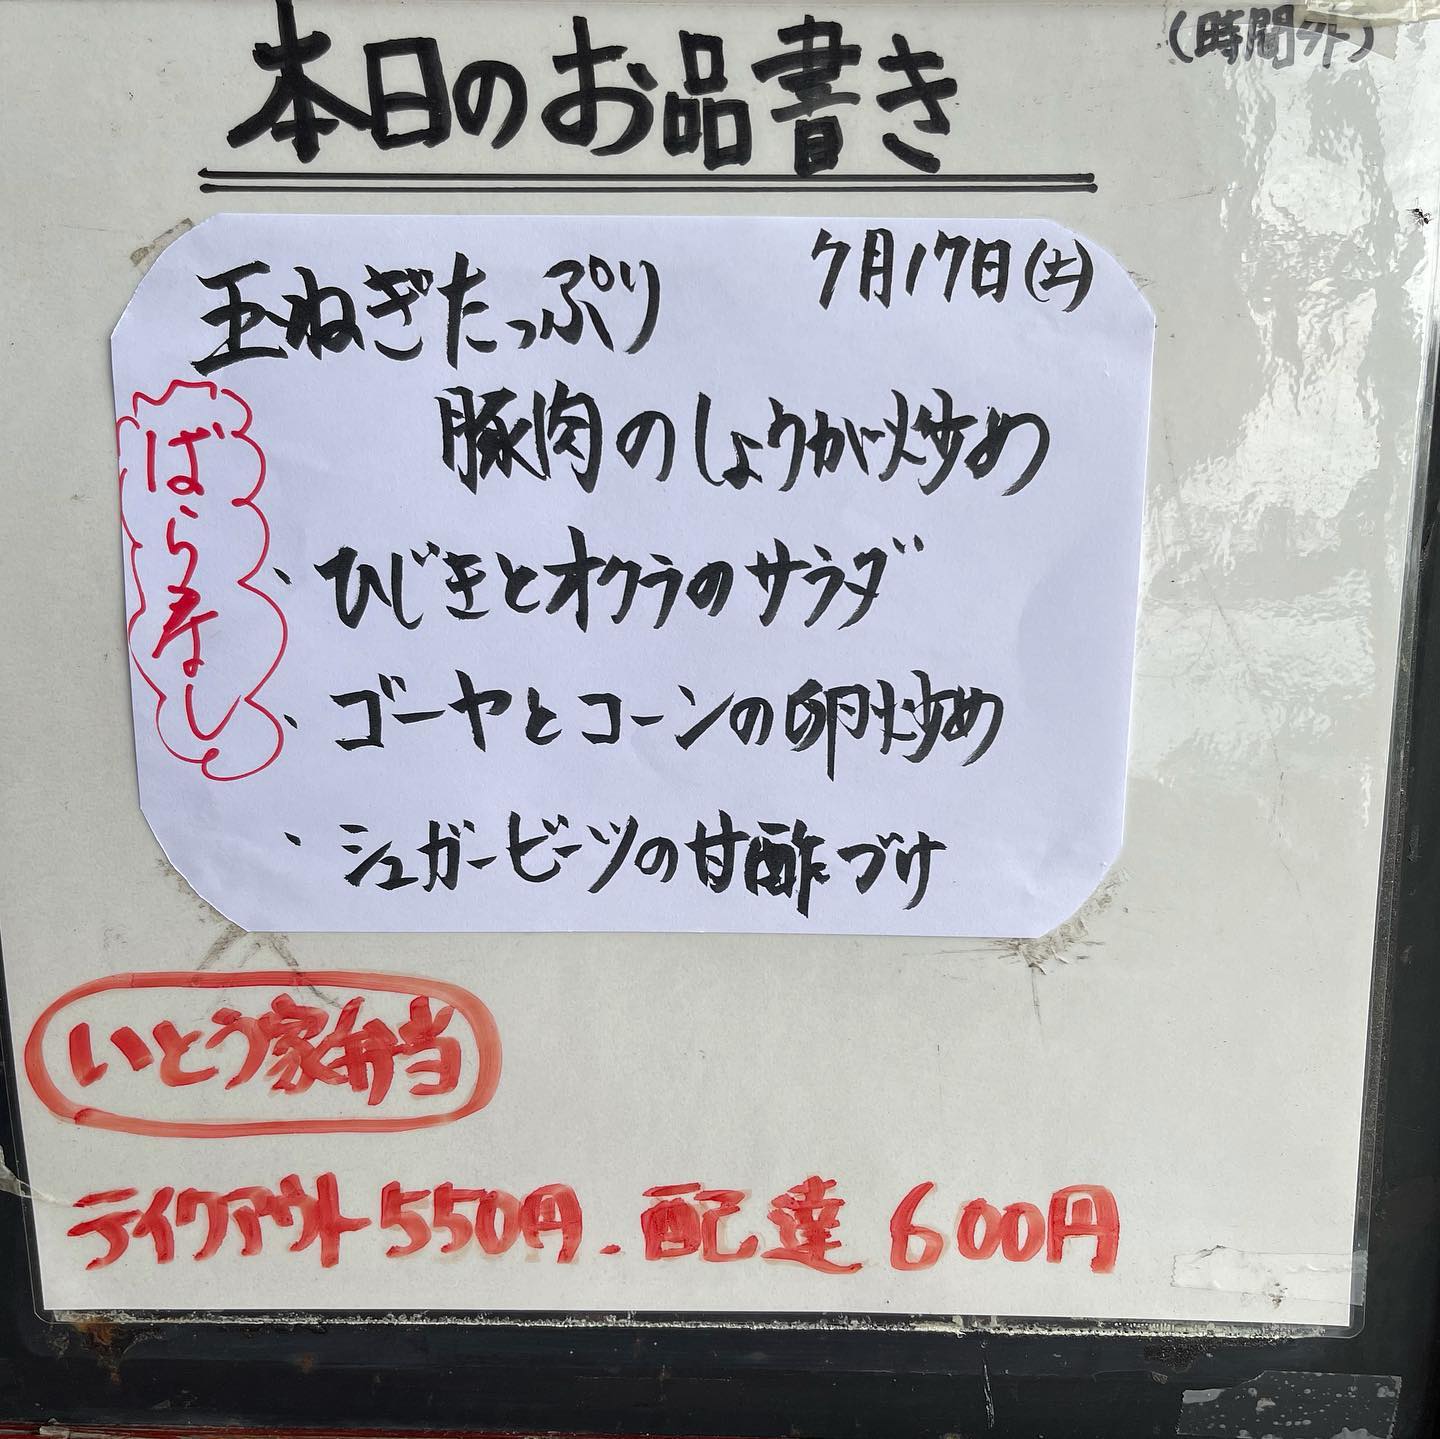 (時間外)
本日のお品書き
7月17日(土)
玉ねぎたっぷり
豚肉のしょうが炒め
ばら寿なし
・ひじきとオクラのサラダ
・ゴーヤとコーンの卵炒め
・シュガービーツの甘酢づけ
いとう家弁当
テイクアウト550円.配達600円